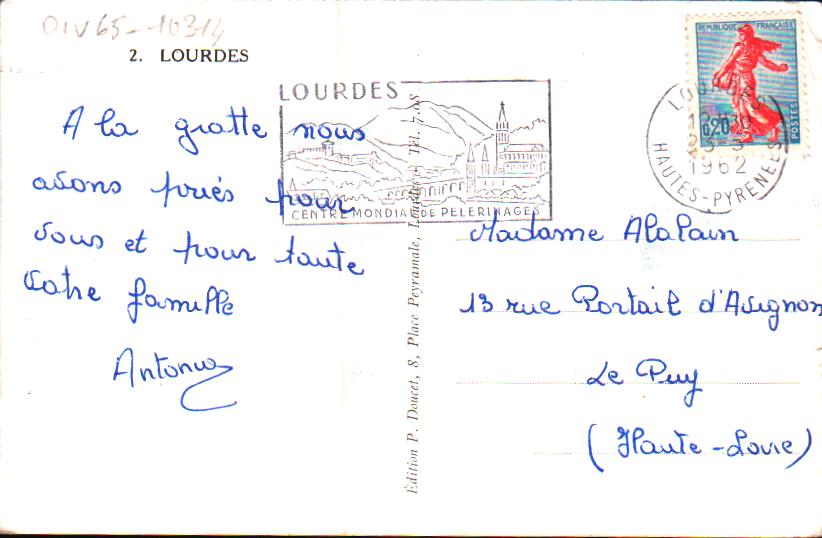 DIV65-10314
2. LOURDES
A la grotte nous
avons priés pour
vous et pour toute
votre famille
LOURDES
CENTRE MONDIAL DE PELERINAGES
Edition P. Doucet, 8, Place Peyramale, Lourdes - Tél. 7.08
REPUBLIQUE FRANÇAISE
0,20
POSTES
LOURDES
1962
HAUTES-PYRENEES
Madame
13 rue Portail d'Avignon
Le Puy
(Haute-Loire)